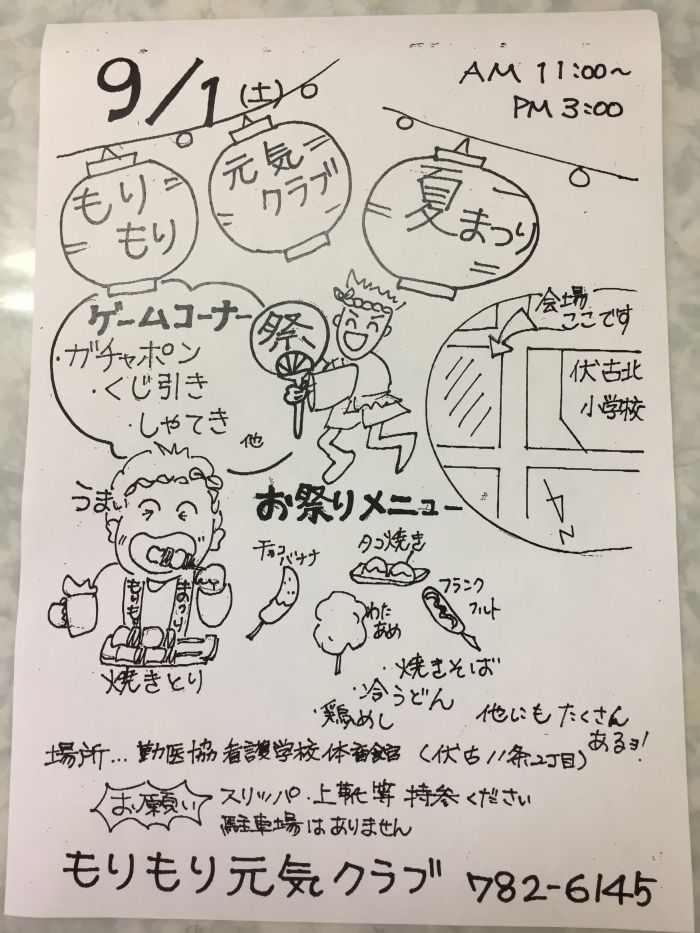 9/1(土)
AM 11:00～
PM 3:00
もり
もり
元気
クラブ
夏まつり
ゲームコーナー
・ガチャポン
・くじ引き
・しゃてき
他
祭
会場
ここです
伏古北
小学校
N
うまい
お祭りメニュー
チョコバナナ
タコ焼き
フランク
フルト
わた
あめ
もりもり
まつり
焼きとり
・焼きそば
・冷うどん
・鶏めし
他にもたくさん
あるヨ!
場所…勤医協看護学校体育館(伏古11条2丁目)
お願い
スリッパ・上靴等持参ください
駐車場はありません
もりもり元気クラブ 782-6145